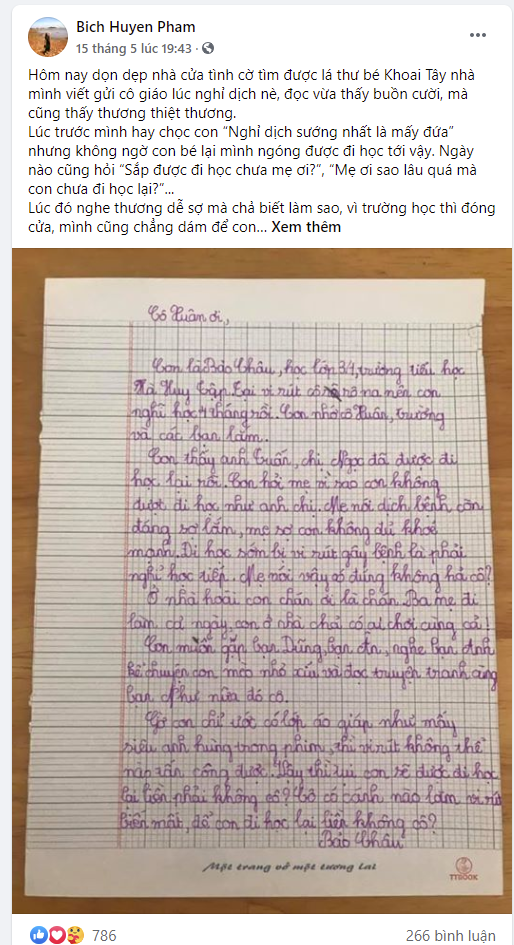 Bich Huyen Pham
15 tháng 5 lúc 19:43 ·
Hôm nay dọn dẹp nhà cửa tình cờ tìm được lá thư bé Khoai Tây nhà
mình viết gửi cô giáo lúc nghỉ dịch nè, đọc vừa thấy buồn cười, mà
cũng thấy thương thiệt thương.
Lúc trước mình hay chọc con “Nghỉ dịch sướng nhất là mấy đứa”
nhưng không ngờ con bé lại mình ngóng được đi học tới vậy. Ngày
nào cũng hỏi “Sắp được đi học chưa mẹ ơi?”, “Mẹ ơi sao lâu quá mà
con chưa đi học lại?”...
Lúc đó nghe thương dễ sợ mà chả biết làm sao, vì trường học thì đóng
cửa, mình cũng chẳng dám để con... Xem thêm
Cô Xuân ơi,
Con là Bảo Châu, học lớp 3/4, trường tiểu học
Hà Huy Tập. Tại vi rút cô rô na nên con
nghĩ học 4 tháng rồi. Con nhớ cô Xuân, trường
và các bạn lắm.
Con thấy anh Tuấn, chị Ngọc đã được đi
học lại rồi. Con hỏi mẹ vì sao con không
được đi học như anh chị. Mẹ nói dịch bệnh còn
đáng sợ lắm, mẹ sợ con không đủ khoẻ
mạnh. Đi học sớm bị vi rút gây bệnh là phải
nghỉ học tiếp. Mẹ nói vậy có đúng không hả cô?
Ở nhà hoài con chán ơi là chán. Ba mẹ đi
làm cả ngày, con ở nhà chả có ai chơi cùng cả!
Con muốn gặp bạn Dũng, bạn Ân, nghe bạn Anh
kể chuyện con mèo nhỏ xíu và đọc truyện tranh cùng
bạn Như nữa đó cô.
Giờ con chỉ ước có lớp áo giáp như mấy
siêu anh hùng trong phim, thì vi rút không thể
nào tấn công được. Vậy thì tụi con sẽ được đi học
lại liền phải không cô? Cô có cách nào làm vi rút
biến mất, để con đi học lại liền không cô?
Bảo Châu
Một trang vở một tương lai
TTBOOK
786
266 bình luận